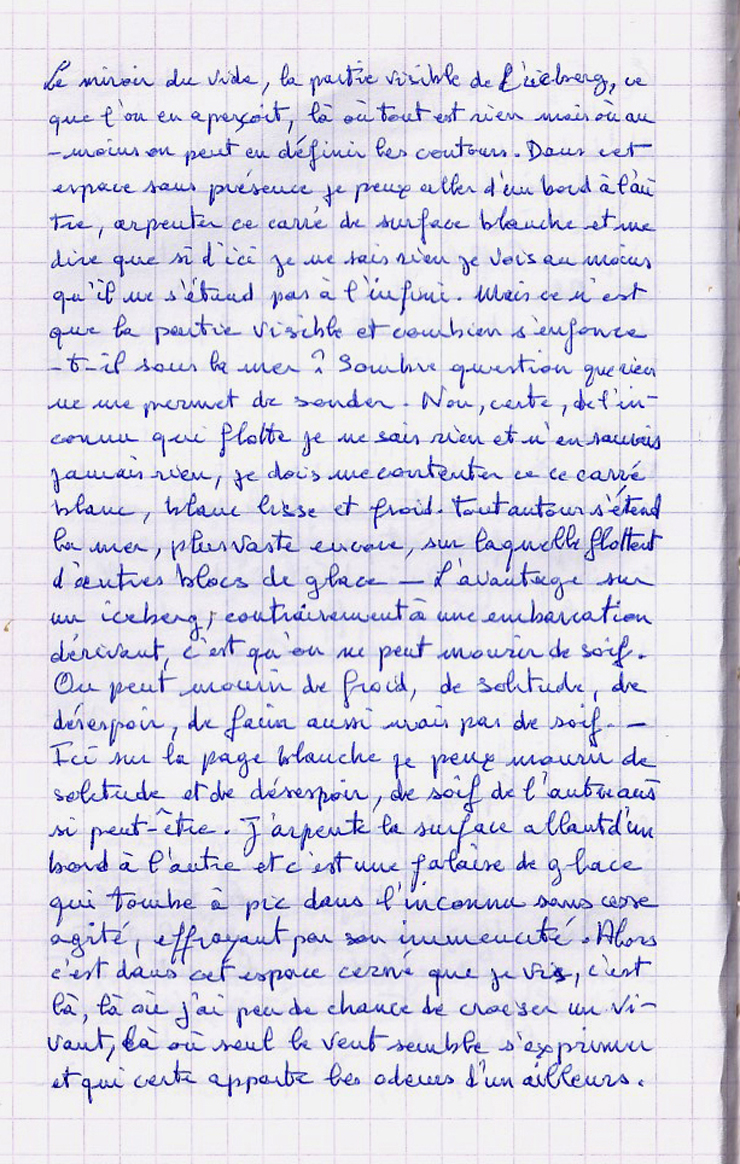 Le miroir du vide, la partie visible de l'iceberg, ce
que l'on en aperçoit, là où tout est rien mais où au
-moins on peut en définir les contours. Dans cet
espace sans présence je peux aller d'un bord à l'au
tre, arpenter ce carré de surface blanche et me
dire que si d'ici je ne sais rien je vois au moins
qu'il ne s'étend pas à l'infini. Mais ce n'est
que la partie visible et combien s'enfonce
-t-il sous la mer ? Sombre question que rien
ne me permet de sonder. Non, certe, de l'in-
connu qui flotte je ne sais rien et n'en saurais
jamais rien, je dois me contenter ce ce carré
blanc, blanc lisse et froid. Tout autour s'étend
la mer, plus vaste encore, sur laquelle flottent
d'autres blocs de glace — L'avantage sur
un iceberg, contrairement à une embarcation
dérivant, c'est qu'on ne peut mourir de soif.
On peut mourir de froid, de solitude, de
désespoir, de faim aussi mais pas de soif. —
Ici sur la page blanche je peux mourir de
solitude et de désespoir, de soif de l'autre aus
si peut-être. J'arpente la surface allant d'un
bord à l'autre et c'est une falaise de glace
qui tombe à pic dans l'inconnu sans cesse
agité, effrayant par son immencité. Alors
c'est dans cet espace cerné que je vis, c'est
là, là où j'ai peu de chance de croiser un vi-
vant, là où seul le vent semble s'exprimer
et qui certe apporte les odeurs d'un ailleurs.